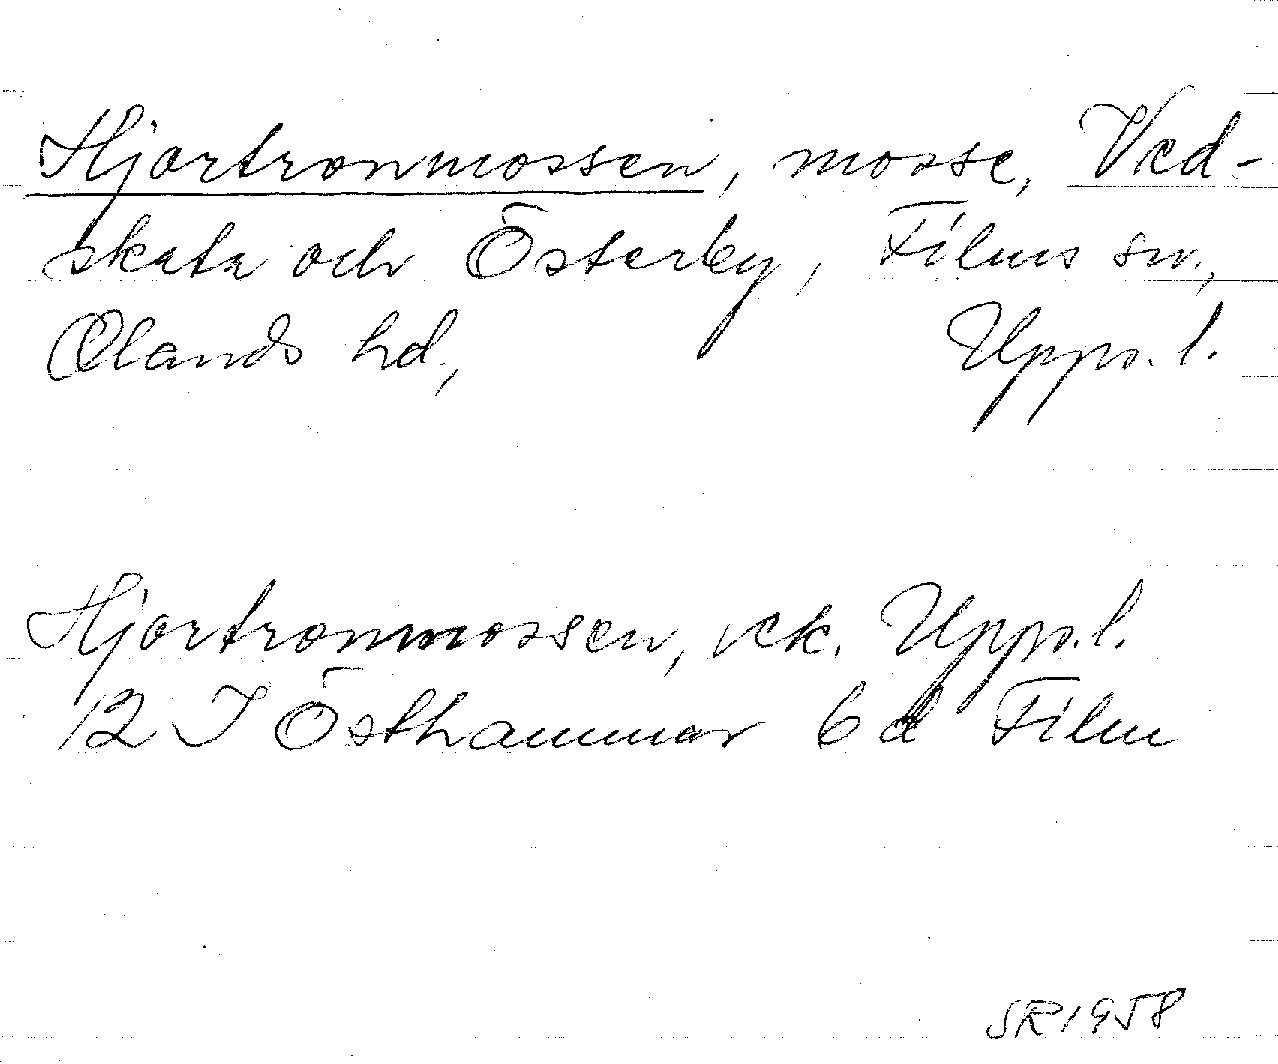 Hjortronmossen, mosse, Ved-
skata och Österby, Films sn,
Olands hd, Upps. l.
Hjortronmossen, ek. Upps. l.
12 I Östhammar 6 d Film
SR 1958